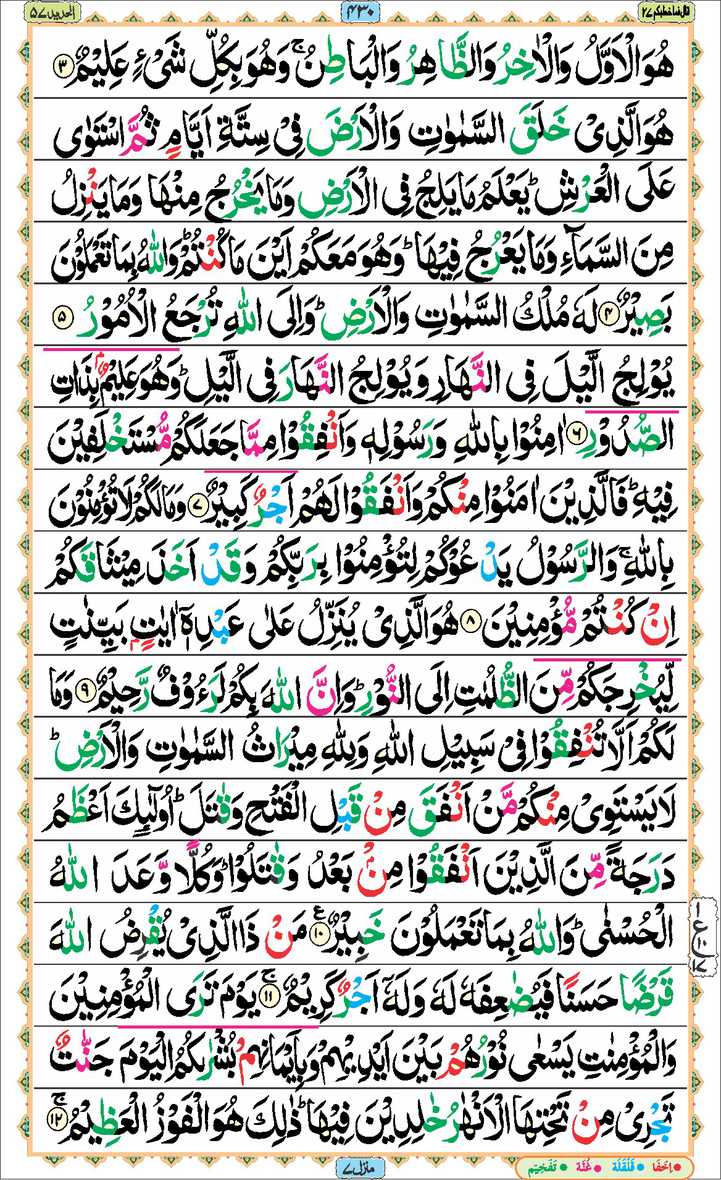 قال فما خطبكم ٢٧ ٤٣٠ الحديد ٥٧
هُوَ الْاَوَّلُ وَالْاٰخِرُ وَالظَّاهِرُ وَالْبَاطِنُ ۚ وَهُوَ بِكُلِّ شَیْءٍ عَلِیْمٌ ٣
هُوَ الَّذِیْ خَلَقَ السَّمٰوٰتِ وَالْاَرْضَ فِیْ سِتَّةِ اَیَّامٍ ثُمَّ اسْتَوٰی
عَلَی الْعَرْشِ ؕ یَعْلَمُ مَا یَلِجُ فِی الْاَرْضِ وَمَا یَخْرُجُ مِنْهَا وَمَا یَنْزِلُ
مِنَ السَّمَآءِ وَمَا یَعْرُجُ فِیْهَا ؕ وَهُوَ مَعَكُمْ اَیْنَ مَا كُنْتُمْ ؕ وَاللّٰهُ بِمَا تَعْمَلُوْنَ
بَصِیْرٌ ٤ لَهٗ مُلْكُ السَّمٰوٰتِ وَالْاَرْضِ ؕ وَاِلَی اللّٰهِ تُرْجَعُ الْاُمُوْرُ ٥
یُوْلِجُ الَّیْلَ فِی النَّهَارِ وَیُوْلِجُ النَّهَارَ فِی الَّیْلِ ؕ وَهُوَ عَلِیْمٌۢ بِذَاتِ
الصُّدُوْرِ ٦ اٰمِنُوْا بِاللّٰهِ وَرَسُوْلِهٖ وَاَنْفِقُوْا مِمَّا جَعَلَكُمْ مُّسْتَخْلَفِیْنَ
فِیْهِ ؕ فَالَّذِیْنَ اٰمَنُوْا مِنْكُمْ وَاَنْفَقُوْا لَهُمْ اَجْرٌ كَبِیْرٌ ٧ وَمَا لَكُمْ لَا تُؤْمِنُوْنَ
بِاللّٰهِ ۚ وَالرَّسُوْلُ یَدْعُوْكُمْ لِتُؤْمِنُوْا بِرَبِّكُمْ وَقَدْ اَخَذَ مِیْثَاقَكُمْ
اِنْ كُنْتُمْ مُّؤْمِنِیْنَ ٨ هُوَ الَّذِیْ یُنَزِّلُ عَلٰی عَبْدِهٖۤ اٰیٰتٍۭ بَیِّنٰتٍ
لِّیُخْرِجَكُمْ مِّنَ الظُّلُمٰتِ اِلَی النُّوْرِ ؕ وَاِنَّ اللّٰهَ بِكُمْ لَرَءُوْفٌ رَّحِیْمٌ ٩ وَمَا
لَكُمْ اَلَّا تُنْفِقُوْا فِیْ سَبِیْلِ اللّٰهِ وَلِلّٰهِ مِیْرَاثُ السَّمٰوٰتِ وَالْاَرْضِ ؕ
لَا یَسْتَوِیْ مِنْكُمْ مَّنْ اَنْفَقَ مِنْ قَبْلِ الْفَتْحِ وَقٰتَلَ ؕ اُولٰٓئِكَ اَعْظَمُ
دَرَجَةً مِّنَ الَّذِیْنَ اَنْفَقُوْا مِنْۢ بَعْدُ وَقٰتَلُوْا ؕ وَكُلًّا وَّعَدَ اللّٰهُ
الْحُسْنٰی ؕ وَاللّٰهُ بِمَا تَعْمَلُوْنَ خَبِیْرٌ ١٠ مَنْ ذَا الَّذِیْ یُقْرِضُ اللّٰهَ
قَرْضًا حَسَنًا فَیُضٰعِفَهٗ لَهٗ وَلَهٗۤ اَجْرٌ كَرِیْمٌ ۚ ١١ یَوْمَ تَرَی الْمُؤْمِنِیْنَ
وَالْمُؤْمِنٰتِ یَسْعٰی نُوْرُهُمْ بَیْنَ اَیْدِیْهِمْ وَبِاَیْمَانِهِمْ بُشْرٰىكُمُ الْیَوْمَ جَنّٰتٌ
تَجْرِیْ مِنْ تَحْتِهَا الْاَنْهٰرُ خٰلِدِیْنَ فِیْهَا ؕ ذٰلِكَ هُوَ الْفَوْزُ الْعَظِیْمُ ۚ ١٢
منزل ٧
اخفا قلقلة غنة تفخیم